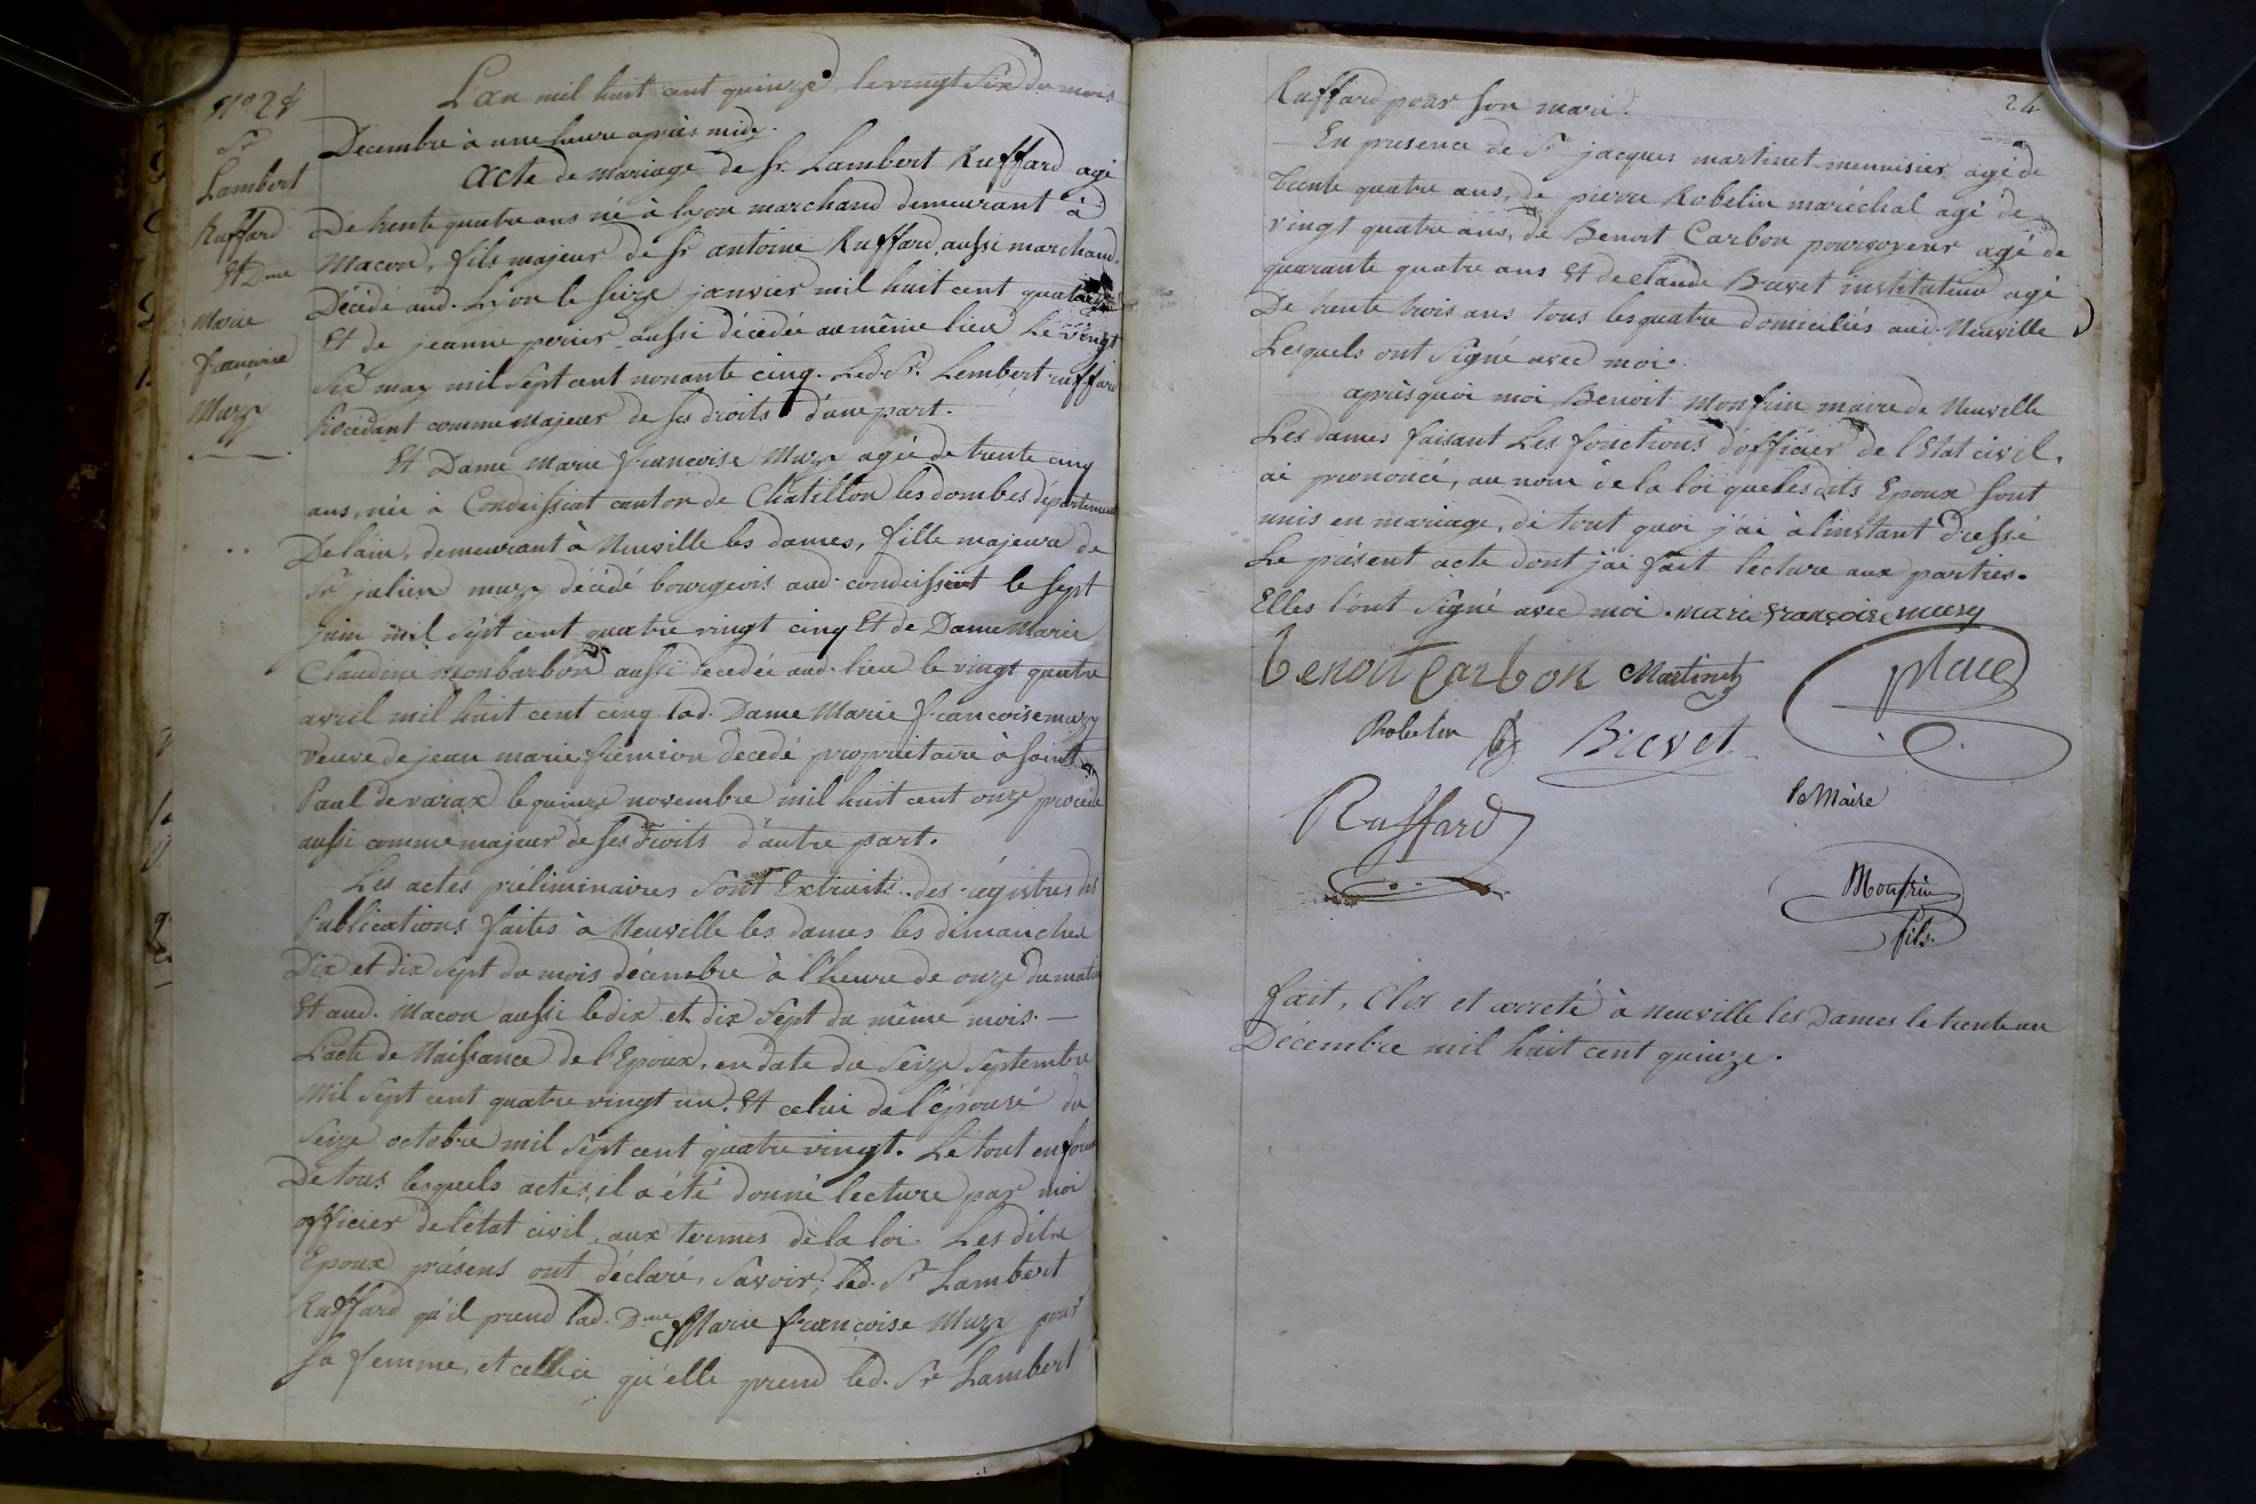 N° 28
Sr
Lambert
Ruffard
Et Dme
Marie
françoise
Mury
L'an mil huit cent quinze, le vingt Six du mois
Décembre à une heure après midy.
Acte de mariage de Sr. Lambert Ruffard agé
De trente quatre ans né à lyon marchand demeurant à
Macon, fils majeur de Sr antoine Ruffard, aussi marchand.
Décédé aud. Lyon le seize janvier mil huit cent quatorze
Et de jeanne perier aussi décédée au même lieu le vingt
Six may mil Sept cent nonante cinq. Led. Sr. Lembert ruffard
Procédant comme majeur de ses droits d'une part.
Et Dame Marie françoise Mury agée de trente cinq
ans, née à Condeissiat canton de Châtillon les dombes département
De l'ain, demeurant à Neuville les dames, fille majeure de
Sr julien mury décédé bourgeois aud. condeissiat le sept
juin mil Sept cent quatre vingt cinq Et de Dame Marie
Claudine Monbarbon aussi decedée aud. lieu le vingt quatre
avril mil huit cent cinq. lad. Dame Marie françoise mury
Veuve de jean marie fremion decedé propriétaire à Saint
Paul de varax le quinze novembre mil huit cent onze procede
aussi comme majeur de ses droits d'autre part.
Les actes préliminaires Sont Extraits des régistres des
Publications faites à Neuville les dames les dimanches
Dix et dix sept du mois décembre à l'heure de onze du matin
Et aud. Macon aussi le dix et dix Sept du même mois.
L'acte de Naissance de l'Epoux, en date du Seize Septembre
Mil Sept cent quatre vingt un. Et celui de l'épouse du
Seize octobre mil Sept cent quatre vingt. Le tout en forme
De tous lesquels actes, il a été donné lecture par moi
officier de l'état civil, aux termes de la loi. Les dits
Epoux présens ont déclaré, Savoir, led. Sr Lambert
Ruffard qu'il prend lad. Dme Marie françoise Mury pour
Sa femme, et celle ci qu'elle prend led. Sr Lambert
24
Ruffard pour son mari.
En presence de Sr jacques martinet menuisier agé de
trente quatre ans, de pierre Robelin maréchal agé de
vingt quatre ans, de Benoit Carbon pourvoyeur agé de
quarante quatre ans Et de claude Brevet instituteur agé
De trente trois ans tous les quatre domiciliés aud. Neuville
Lesquels ont Signé avec moi.
après quoi moi, Benoit Monfrin maire de Neuville
Les dames faisant Les fonctions d'officier de l'Etat civil,
ai prononcé, au nom de la loi que les dits Epoux Sont
unis en mariage, de tout quoi j'ai à l'instant dressé
Le présent acte dont j'ai fait lecture aux parties.
Elles l'ont Signé avec moi. marie françoise mury
benoit Carbon Martinet place
Robelin Brevet
Ruffard
le Maire
Monfrin
fils.
fait, Clos et arreté à Neuville les Dames le trente un
Décembre mil huit cent quinze.